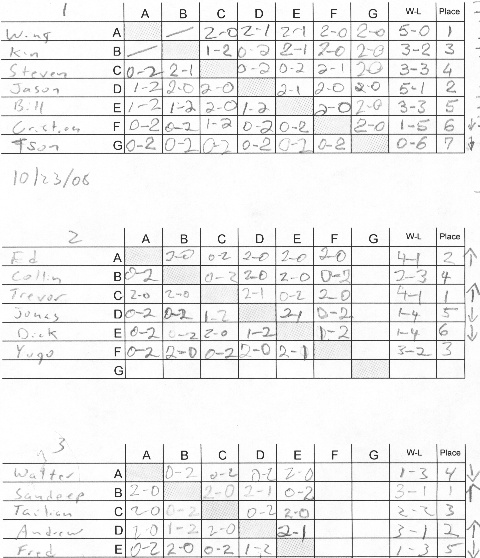 1
A B C D E F G W-L Place
Wing A / 2-0 2-1 2-1 2-0 2-0 5-0 1
Kin B / 1-2 0-2 2-1 2-0 2-0 3-2 3
Steven C 0-2 2-1 0-2 0-2 2-1 2-0 3-3 4
Jason D 1-2 2-0 2-0 2-1 2-0 2-0 5-1 2
Bill E 1-2 1-2 2-0 1-2 2-0 2-0 3-3 5
Cristian F 0-2 0-2 1-2 0-2 0-2 2-0 1-5 6 ↓
Tson G 0-2 0-2 0-2 0-2 0-2 0-2 0-6 7 ↓
10/23/08
2
A B C D E F G W-L Place
Ed A 2-0 0-2 2-0 2-0 2-0 4-1 2 ↑
Collin B 0-2 0-2 2-0 2-0 0-2 2-3 4
Trevor C 2-0 2-0 2-1 0-2 2-0 4-1 1 ↑
Jonas D 0-2 0-2 1-2 2-1 0-2 1-4 5 ↓
Dick E 0-2 0-2 2-0 1-2 1-2 1-4 6 ↓
Yugo F 0-2 2-0 0-2 2-0 2-1 3-2 3
G
3
A B C D E F G W-L Place
Walter A 0-2 0-2 0-2 2-0 1-3 4 ↓
Sandeep B 2-0 2-0 2-1 0-2 3-1 1 ↑
C 2-0 0-2 0-2 2-0 2-2 3
Andrew D 2-0 1-2 2-0 2-1 3-1 2 ↑
Fred E 0-2 2-0 0-2 1-2 1-3 5 ↓